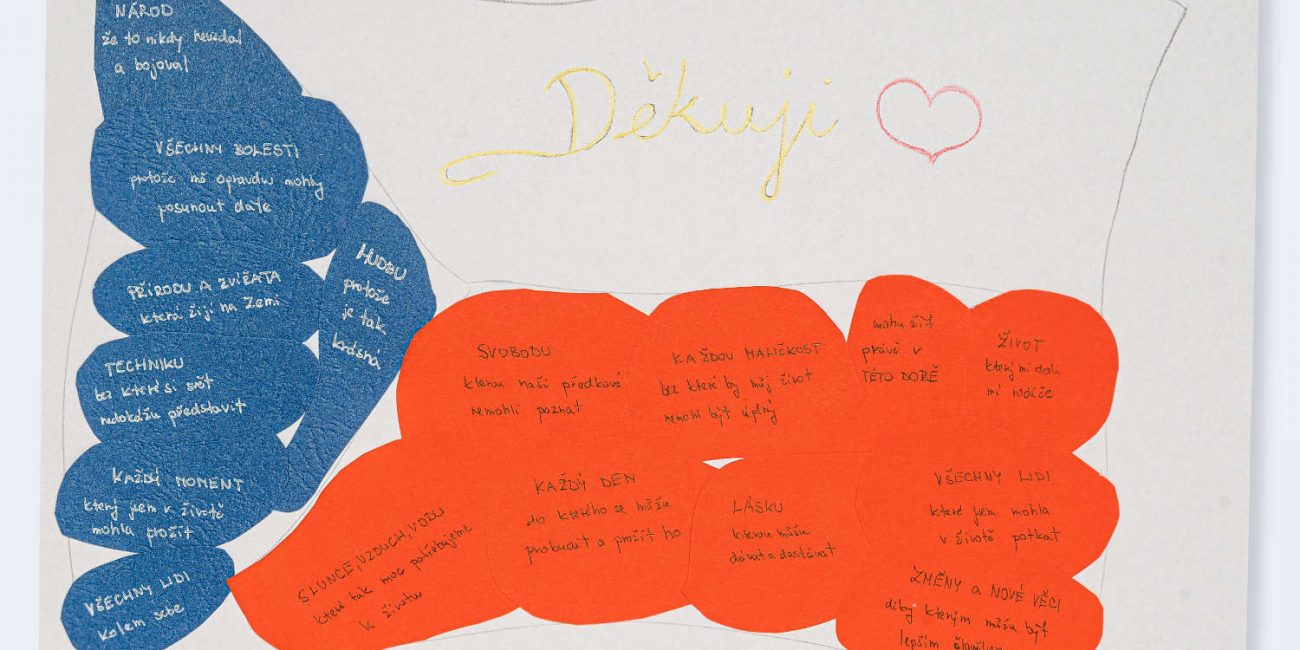 Děkuji
NÁROD
že to nikdy nevzdal
a bojoval
VŠECHNY BOLESTI
protože mě opravdu mohly
posunout dále
HUDBU
protože
je tak
krásná
PŘÍRODU A ZVÍŘATA
která žijí na Zemi
TECHNIKU
bez které si svět
nedokážu představit
KAŽDÝ MOMENT
který jsem v životě
mohla prožít
VŠECHNY LIDI
kolem sebe
SVOBODU
kterou naši předkové
nemohli poznat
KAŽDOU MALIČKOST
bez které by můj život
nemohl být úplný
mohu žít
právě v
TÉTO DOBĚ
ŽIVOT
který mi dali
mí rodiče
SLUNCE, VZDUCH, VODU
které tak moc potřebujeme
k životu
KAŽDÝ DEN
do kterého se můžu
probudit a prožít ho
LÁSKU
kterou můžu
dávat a dostávat
VŠECHNY LIDI
které jsem mohla
v životě potkat
ZMĚNY a NOVÉ VĚCI
díky kterým můžu být
lepším